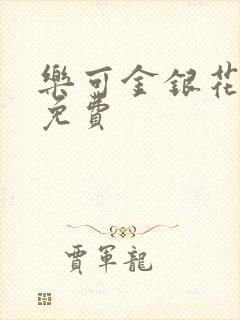 樂可金銀花
免費
賈軍龍